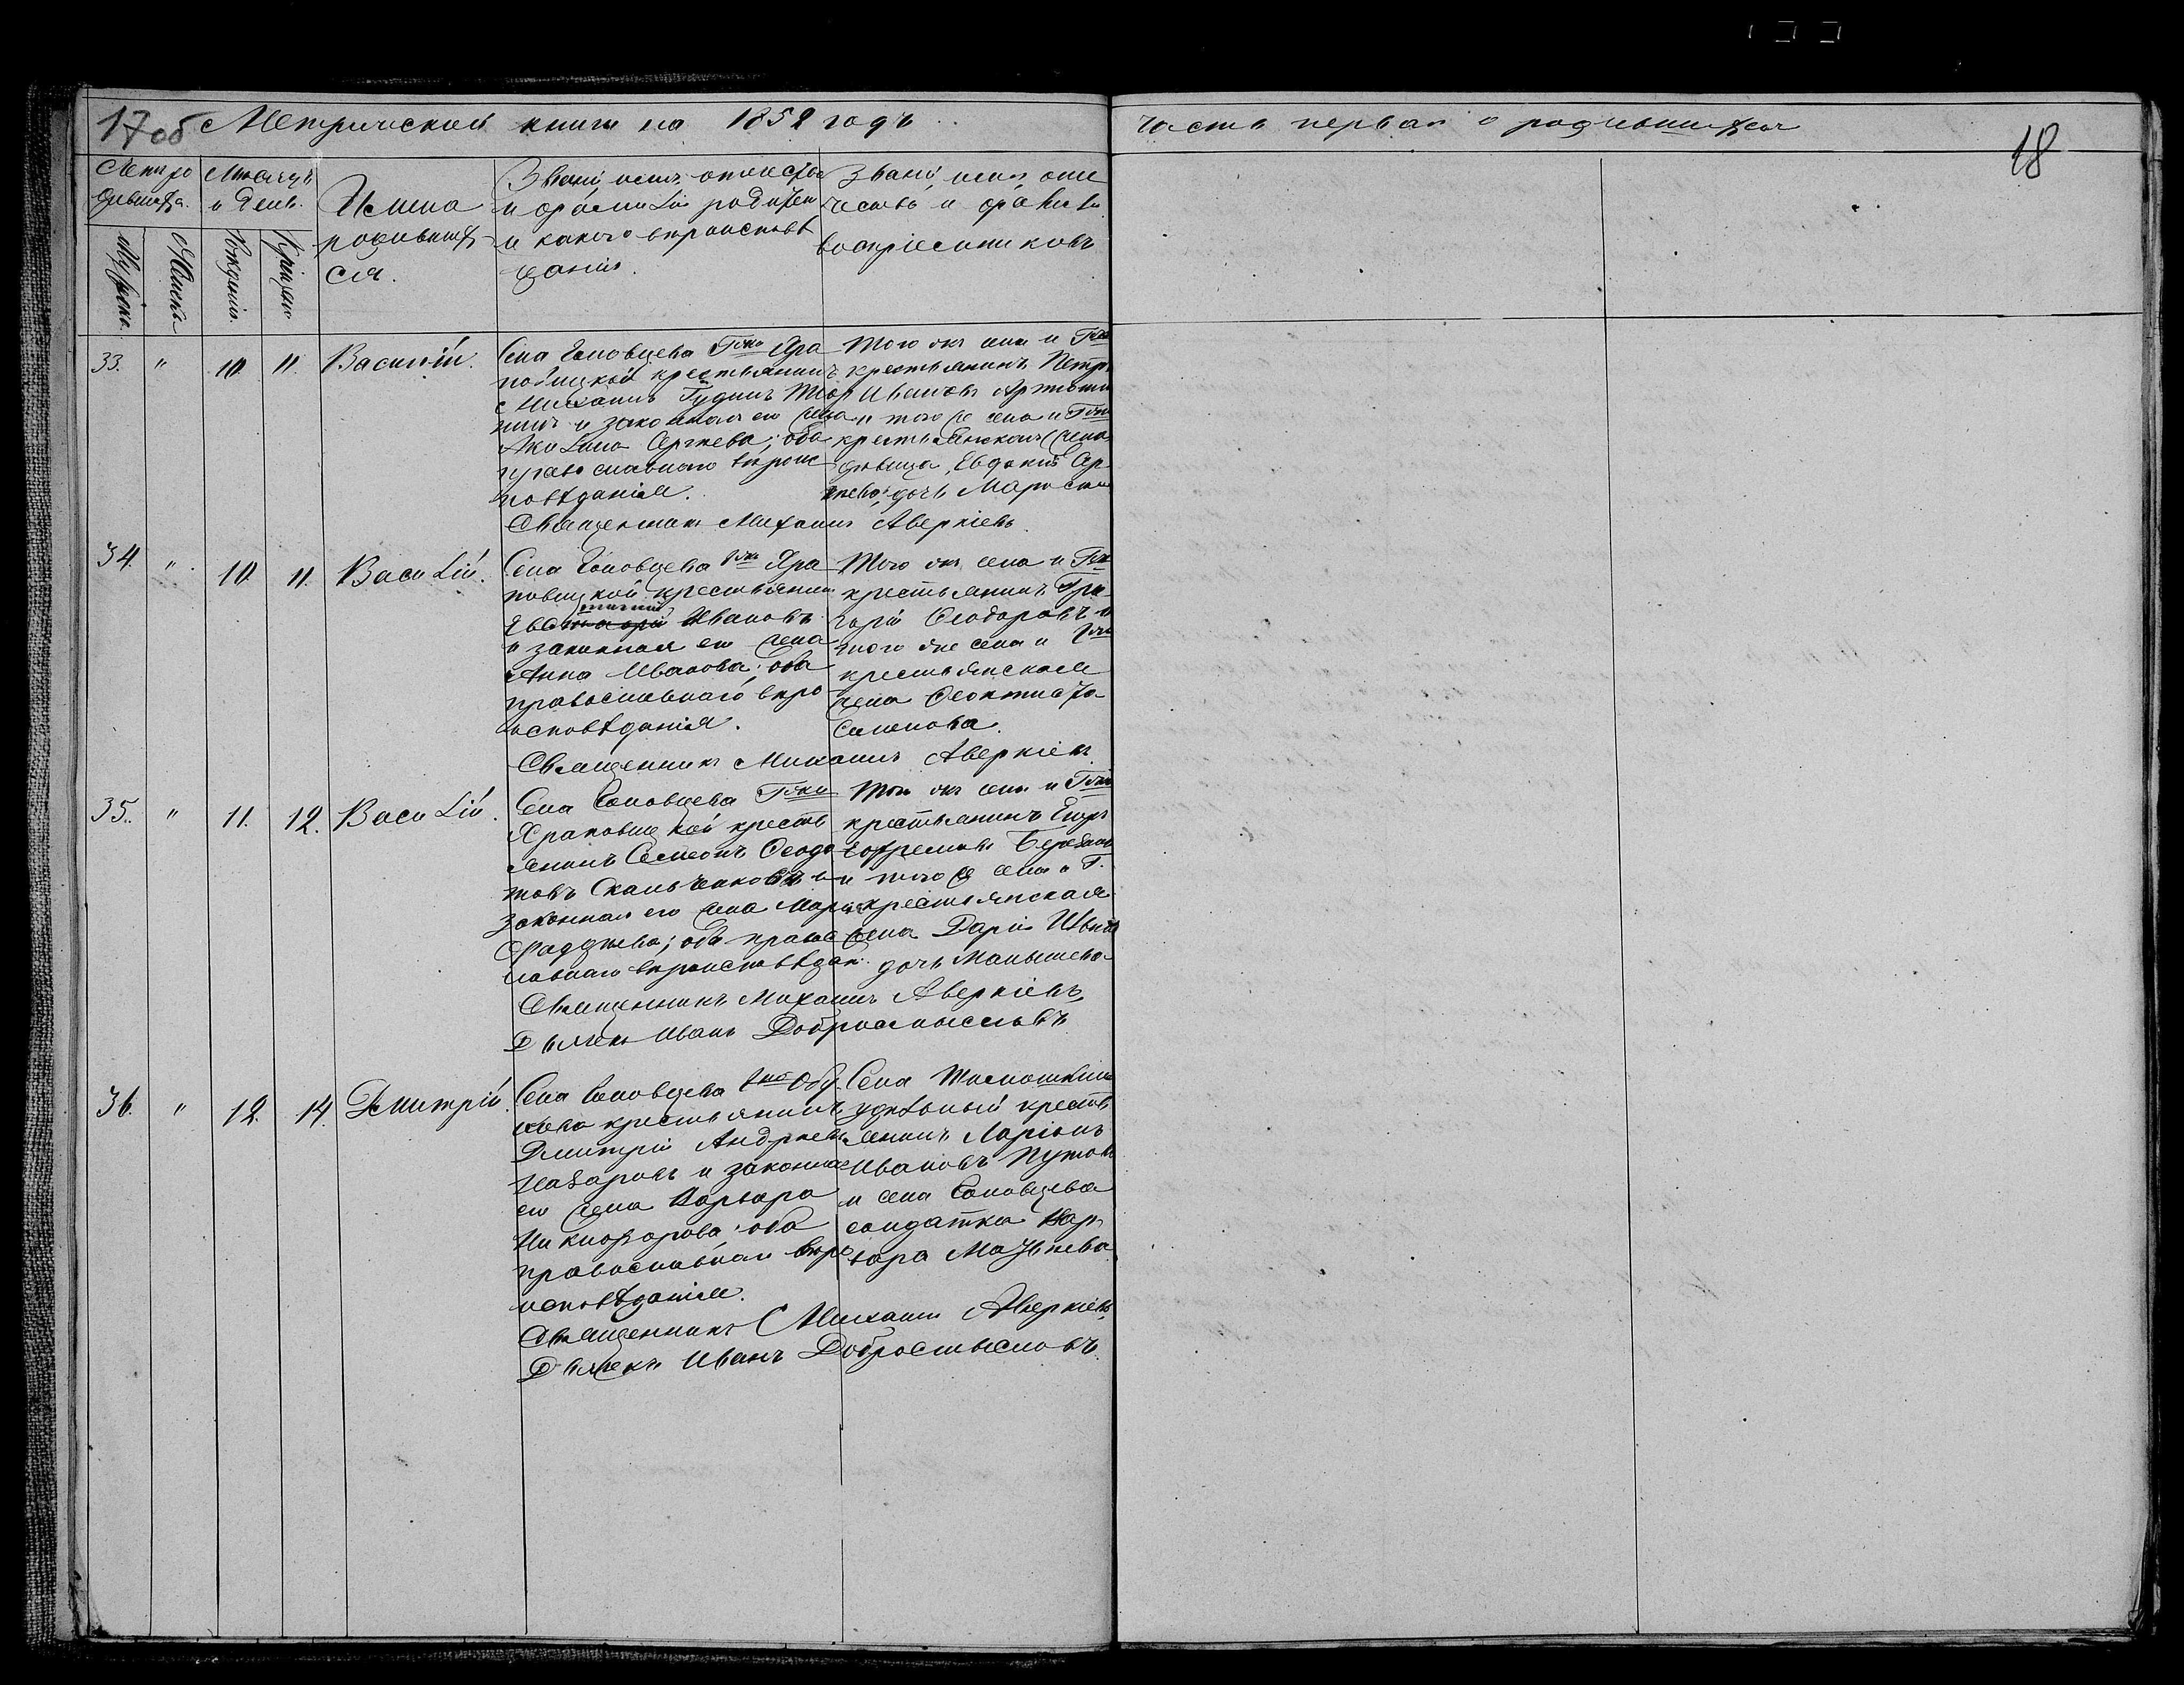 17 об Метрической книги на 1852 годъ
часть первая о родившихся
18
Метро
Мѣсяцъ
и день.
Мужеска.
Женска
Рожденія.
Крещенія
Имена
родивших
ся.
Званіе, имя, отчество
и фамилія родителей
и какого вѣроисповѣ
данія.
Званіе, имя, отче
ство и фамилія
воспріемниковъ
33. " 10. 11. Василій.
Села Соловцева Гжи Хра
повицкой крестьянинъ
Михаилъ
и законная его жена
Акилина Сергѣева; оба
православнаго вѣроис
повѣданія.
Того же села и Гжи
крестьянинъ Петръ
Ивановъ
и того же села и Гжи
крестьянская
дѣвица, Евдокія Сер
гѣева дочь
Священникъ Михаилъ Аверкіевъ
34. " 10. 11. Василій.
Села Соловцева Гжи Хра
повицкой крестьянинъ
Ивановъ
и законная его жена
Анна Иванова; оба
православнаго вѣро
исповѣданія.
Того же села и Гжи
крестьянинъ Гри
горій Ѳеодоровъ и
того же села и Гжи
крестьянская
жена Ѳеоктиста
Семенова.
Священникъ Михаилъ Аверкіевъ
35. " 11. 12. Василій.
Села Соловцева Гжи
Храповицкой кресть
янинъ Симеонъ Ѳеодо
товъ и
законная его жена Марія
Фаддѣева; оба правос
лавнаго вѣроисповѣдан.
Того же села и Гжи
крестьянинъ Егоръ
Ефремовъ
и того же села и Г.
крестьянская
жена Дарія
дочь Малышева
Священникъ Михаилъ Аверкіевъ
Дьячекъ Иванъ Добросмысловъ
36. " 12. 14. Дмитрій.
Села Соловцева
крестьянинъ
Дмитрій Андреевъ
Назаровъ и законная
его жена Варвара
Никифорова; оба
православнаго вѣро
исповѣданія.
Села
удѣльный кресть
янинъ Ларіонъ
Ивановъ
и села Соловцева
солдатка Вар
вара Матвѣева
Священникъ Михаилъ Аверкіевъ
Дьячекъ Иванъ Добросмысловъ